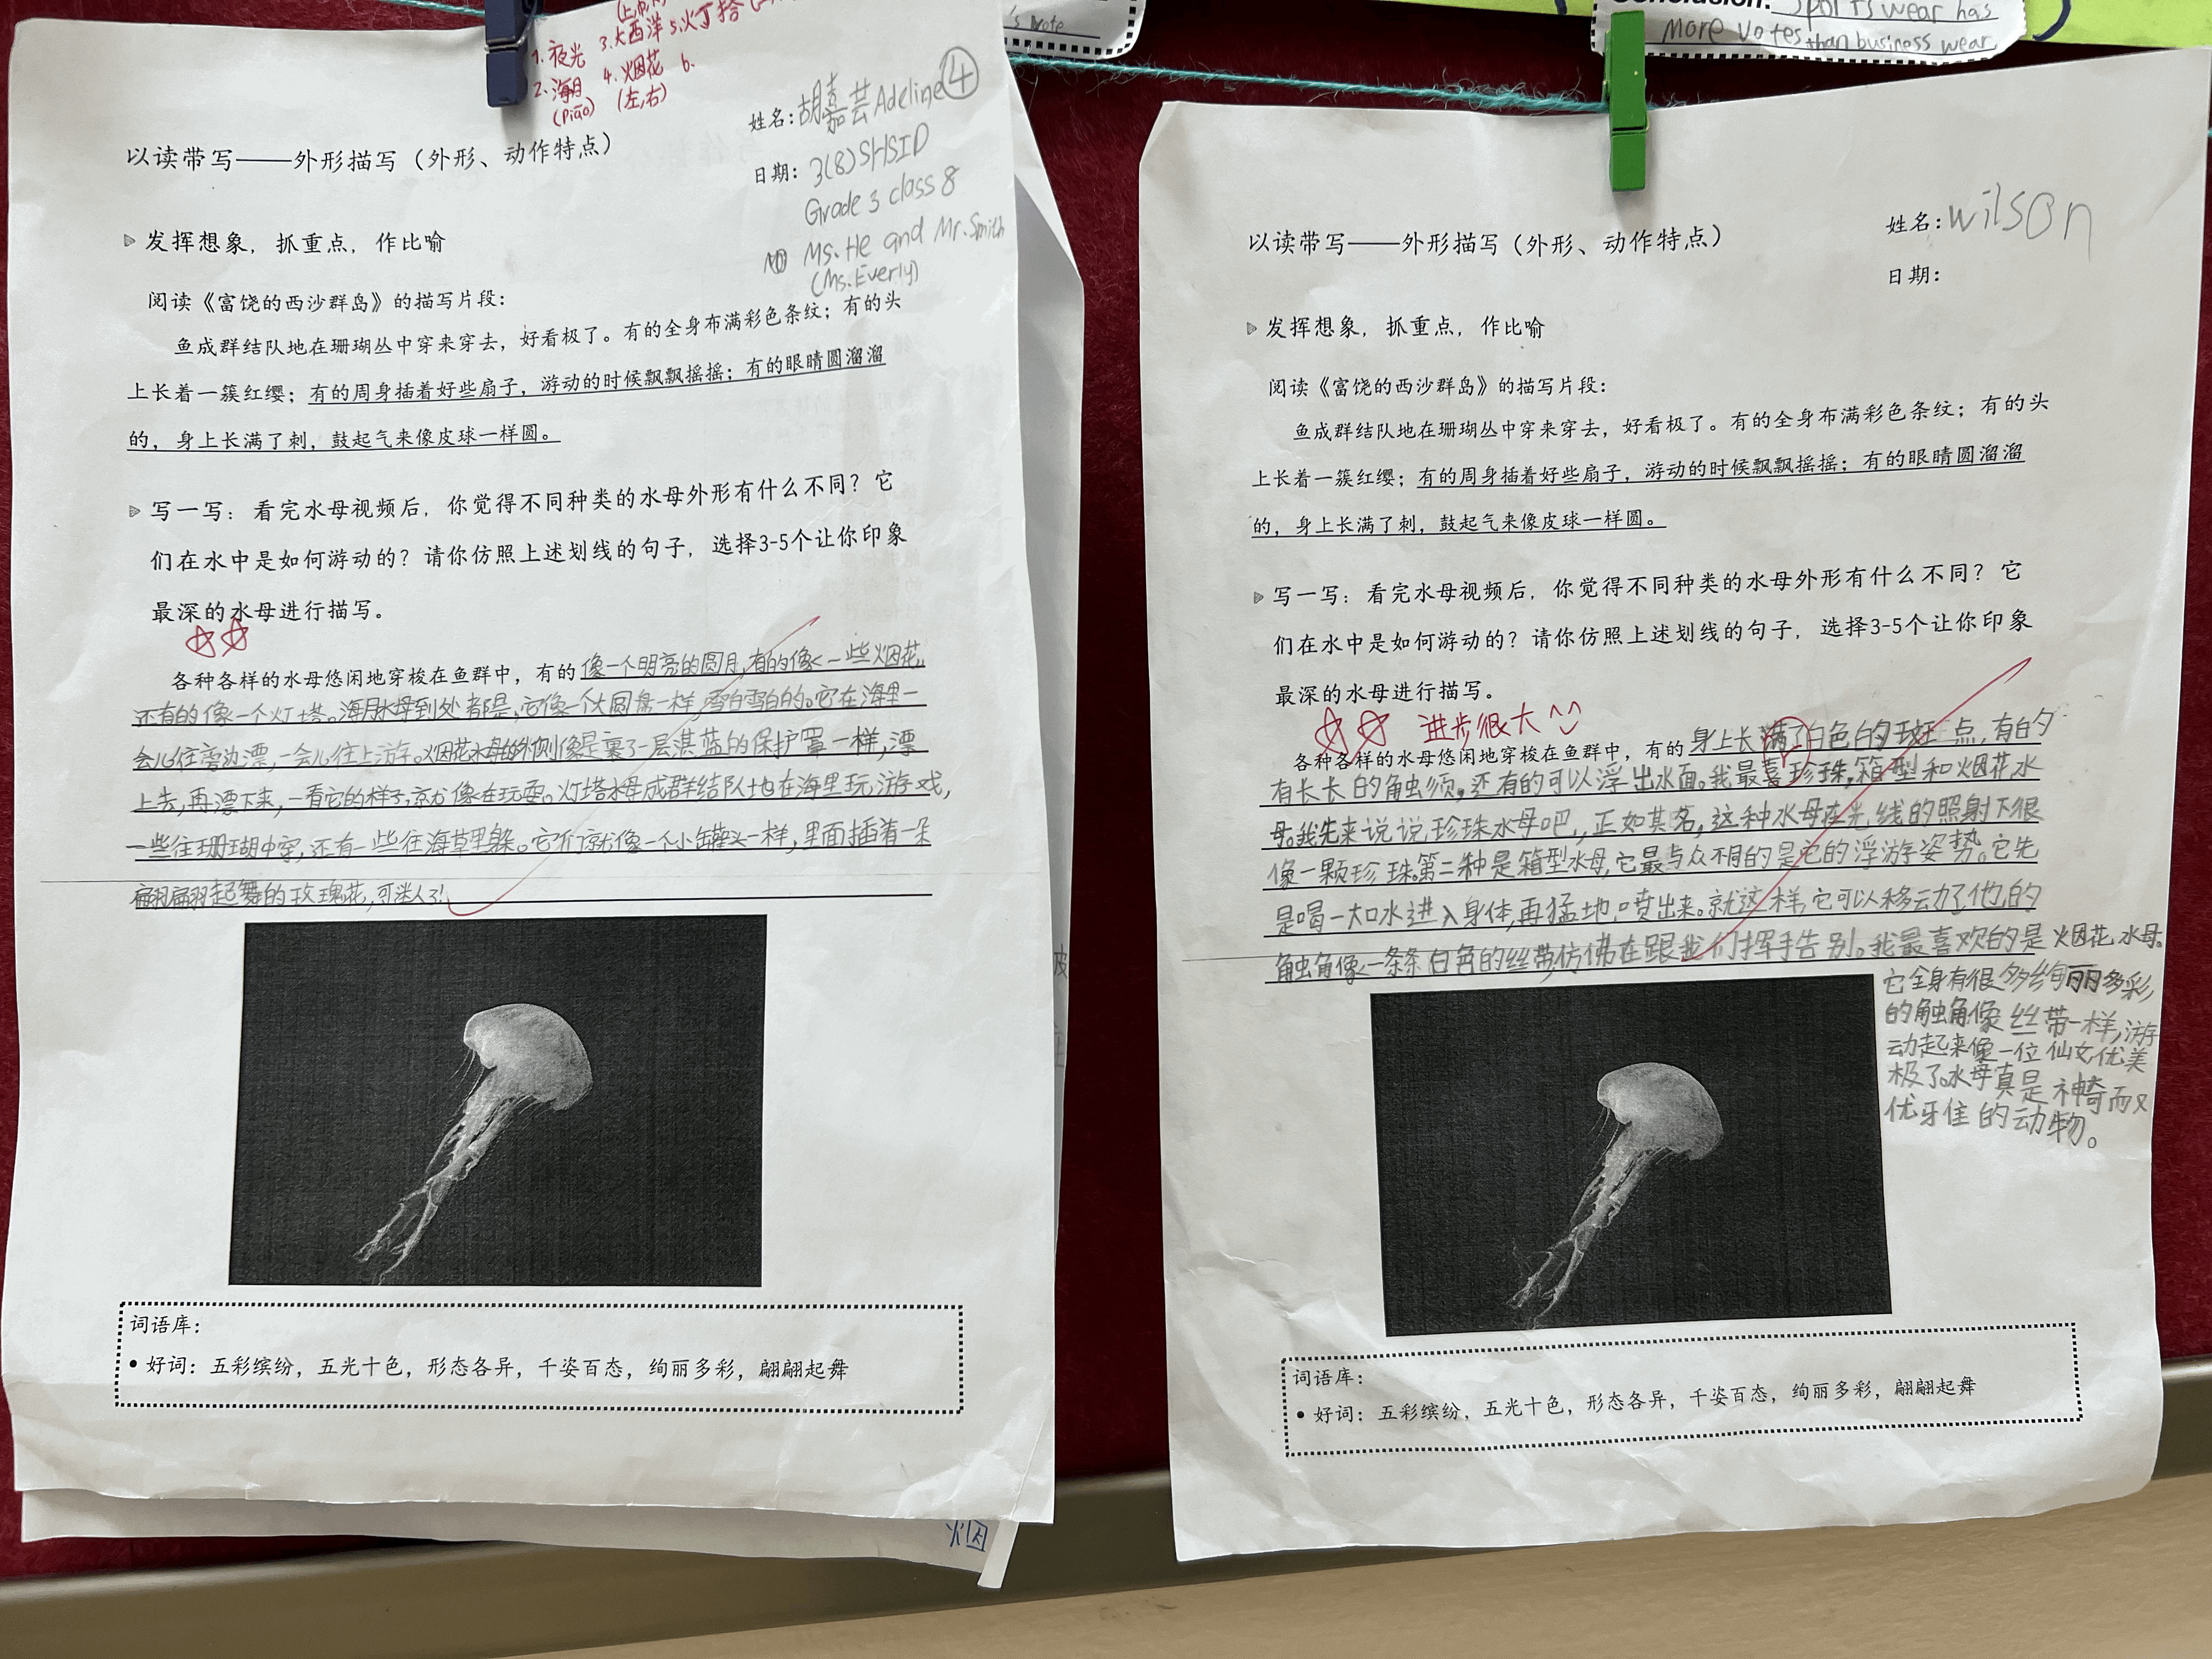 's vote
Conclusion: Sports wear has
more votes than business wear
1.夜光 3.大西洋 5.火丁拾
2.海月 4.烟花 6.
(piāo) (左,右)
姓名:胡嘉芸Adeline④
日期:3(8)SHSID
Grade 3 class 8
Ms. He and Mr. Smith
(Ms. Everly)
以读带写——外形描写（外形、动作特点）
发挥想象，抓重点，作比喻
阅读《富饶的西沙群岛》的描写片段：
鱼成群结队地在珊瑚丛中穿来穿去，好看极了。有的全身布满彩色条纹；有的头
上长着一簇红缨；有的周身插着好些扇子，游动的时候飘飘摇摇；有的眼睛圆溜溜
的，身上长满了刺，鼓起气来像皮球一样圆。
写一写：看完水母视频后，你觉得不同种类的水母外形有什么不同？它
们在水中是如何游动的？请你仿照上述划线的句子，选择3-5个让你印象
最深的水母进行描写。
各种各样的水母悠闲地穿梭在鱼群中，有的像一个明亮的圆月,有的像一些烟花,
还有的像一个灯塔。海月水母到处都是,它像一个大圆盘一样,雪白雪白的。它在海里一
会儿往旁边漂,一会儿往上游。烟花水母的外侧像是裹了一层湛蓝的保护罩一样,漂
上去,再漂下来,一看它的样子,就像在玩耍。灯塔水母成群结队地在海里玩游戏,
一些往珊瑚中穿,还有一些往海草里躲。它们就像一个小罐头一样,里面插着一朵
翩翩起舞的玫瑰花,可迷人了!
词语库：
• 好词：五彩缤纷，五光十色，形态各异，千姿百态，绚丽多彩，翩翩起舞
烟
姓名:wilson
日期:
以读带写——外形描写（外形、动作特点）
发挥想象，抓重点，作比喻
阅读《富饶的西沙群岛》的描写片段：
鱼成群结队地在珊瑚丛中穿来穿去，好看极了。有的全身布满彩色条纹；有的头
上长着一簇红缨；有的周身插着好些扇子，游动的时候飘飘摇摇；有的眼睛圆溜溜
的，身上长满了刺，鼓起气来像皮球一样圆。
写一写：看完水母视频后，你觉得不同种类的水母外形有什么不同？它
们在水中是如何游动的？请你仿照上述划线的句子，选择3-5个让你印象
最深的水母进行描写。
进步很大
各种各样的水母悠闲地穿梭在鱼群中，有的身上长满了白色的斑点,有的
有长长的触须,还有的可以浮出水面。我最喜珍珠,箱型和烟花水
母。我先来说说珍珠水母吧,正如其名,这种水母在光线的照射下很
像一颗珍珠。第二种是箱型水母,它最与众不同的是它的浮游姿势。它先
是喝一大口水进入身体,再猛地喷出来。就这样,它可以移动了,他的
触角像一条条白色的丝带,仿佛在跟我们挥手告别。我最喜欢的是烟花水母。
它全身有很多绚丽多彩,
的触角像丝带一样,游
动起来像一位仙女优美
极了。水母真是神奇而又
优雅的动物。
词语库：
• 好词：五彩缤纷，五光十色，形态各异，千姿百态，绚丽多彩，翩翩起舞